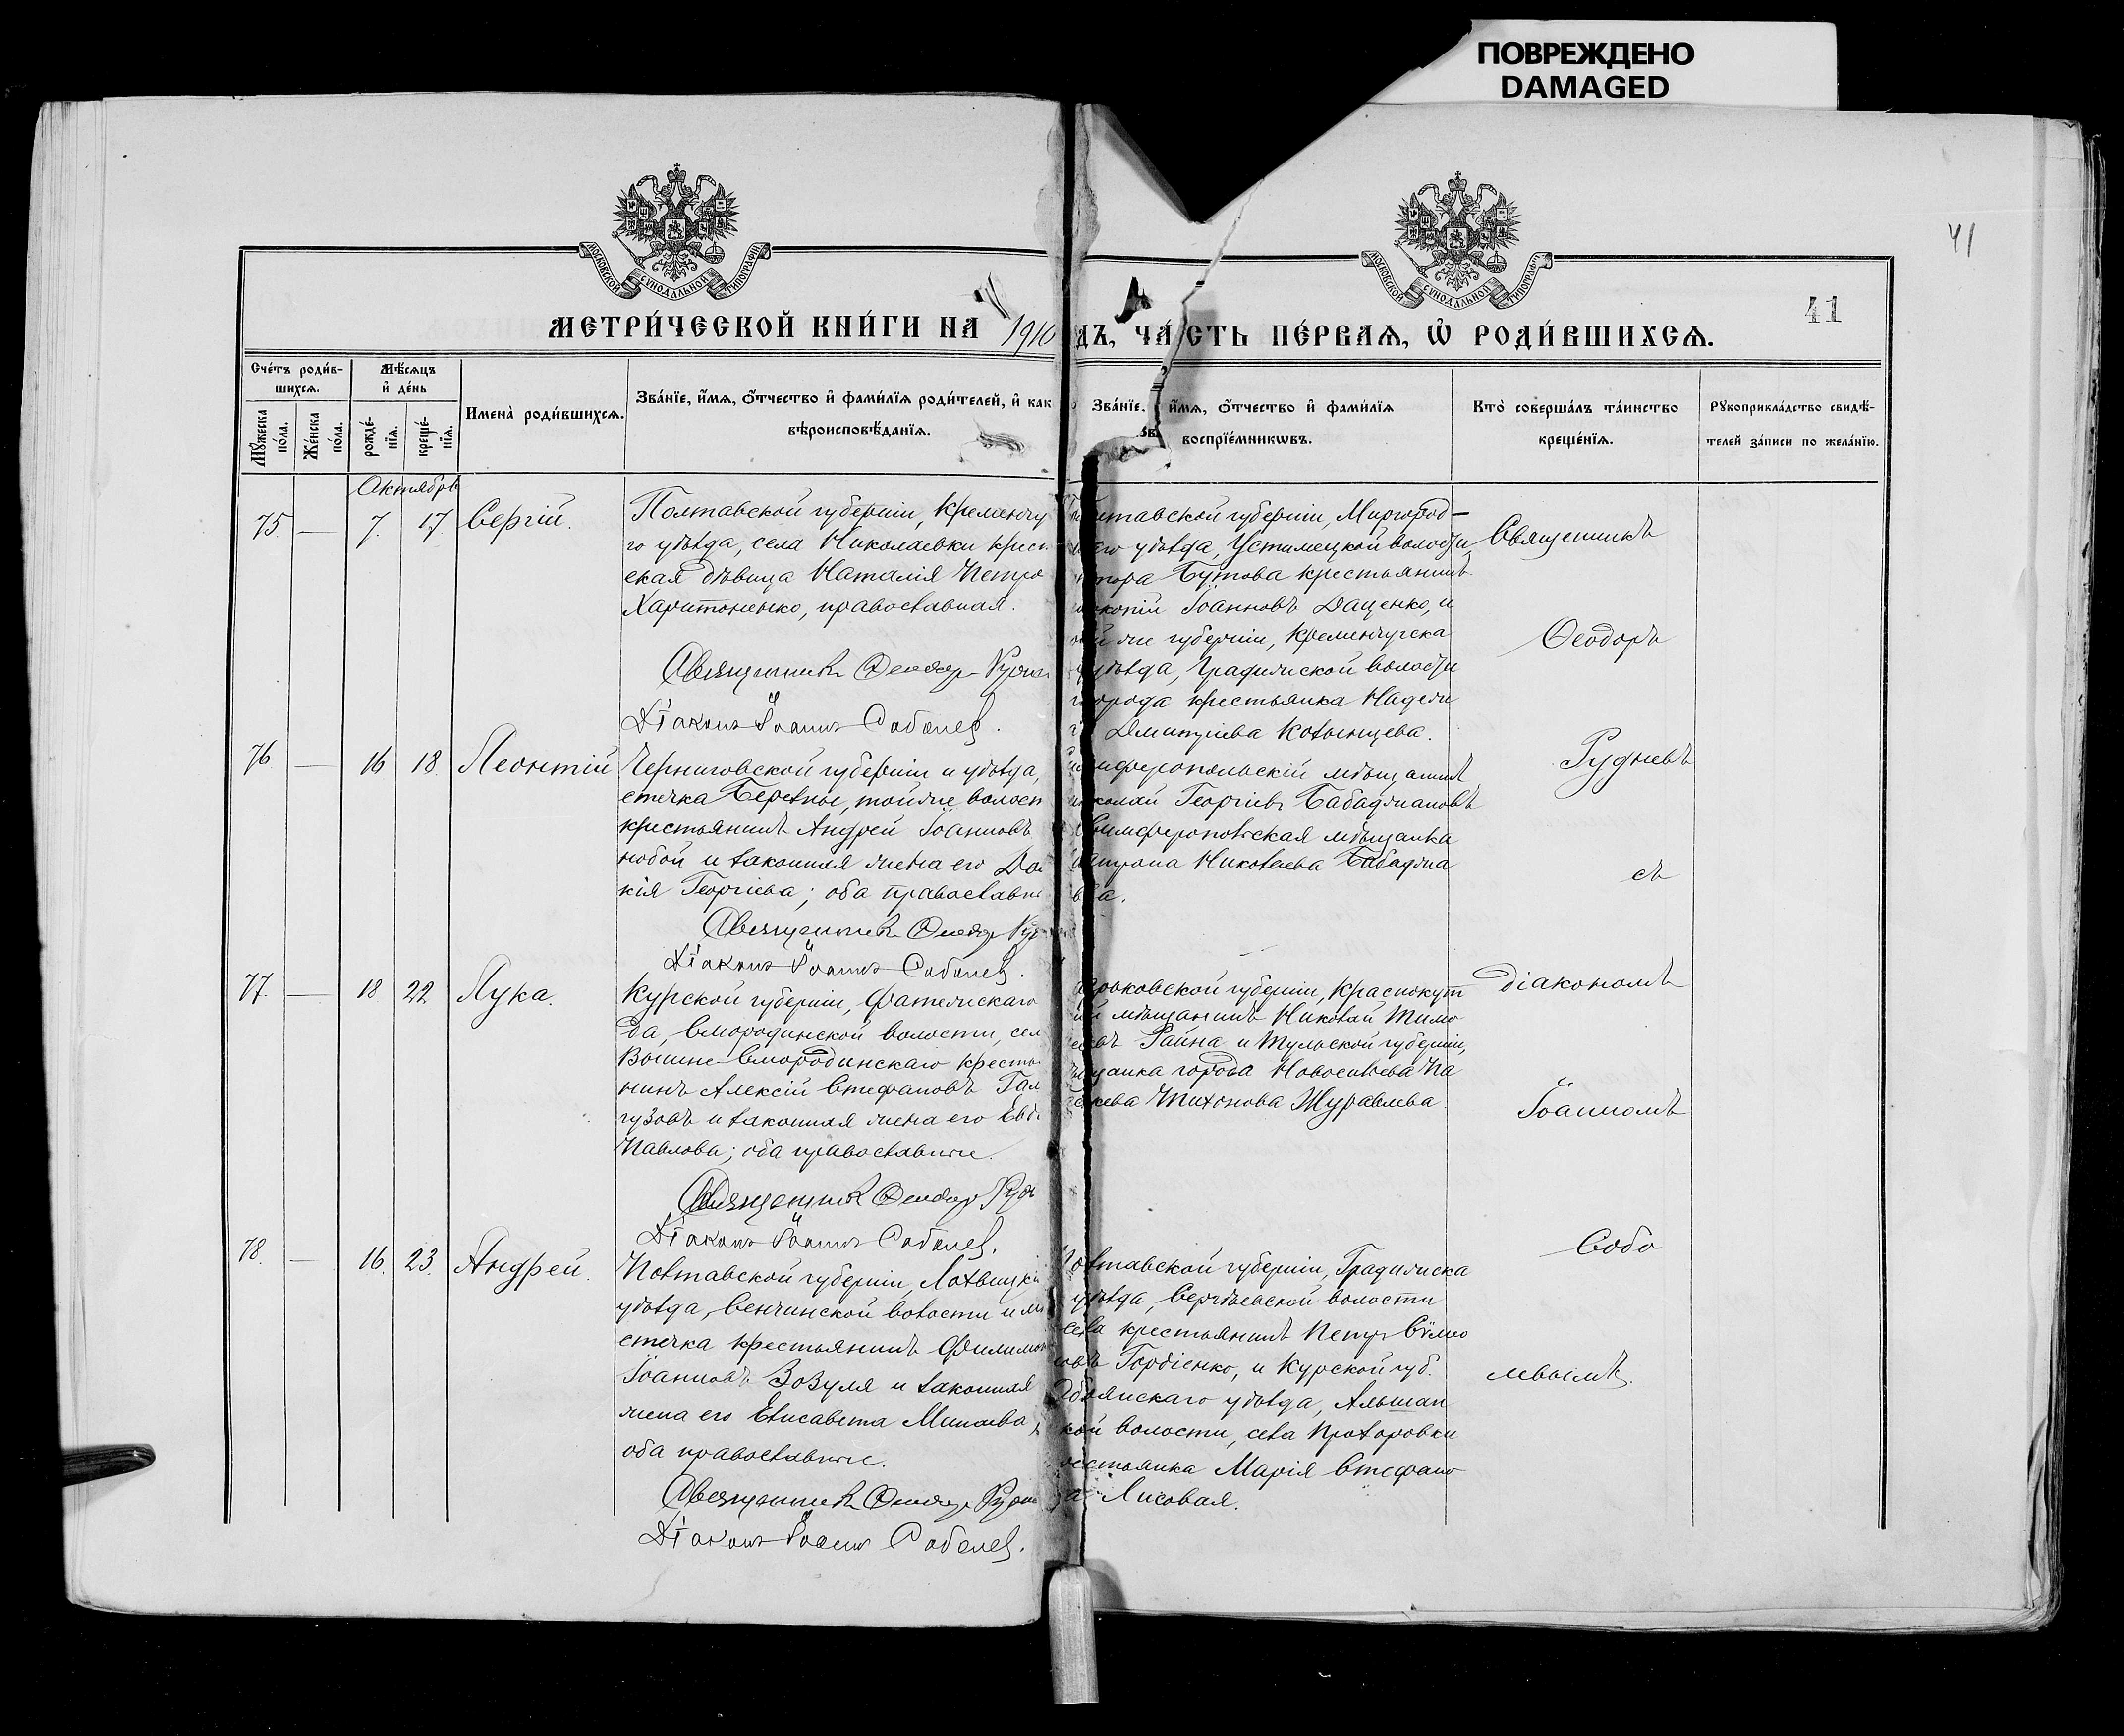 ПОВРЕЖДЕНО
DAMAGED
41
41
МОСКОВСКОЙ СѴНОДАЛЬНОЙ ТИПОГРАФІИ
МОСКОВСКОЙ СѴНОДАЛЬНОЙ ТИПОГРАФІИ
МЕТРИ́ЧЕСКОЙ КНИ́ГИ НА 1910
ДЪ, ЧА́СТЬ ПЕ́РВАѦ, Ѡ҆ РОДИ́ВШИХСѦ.
Сче́тъ роди́в-
шихсѧ.
Мꙋ́жеска
по́ла.
Же́нска
по́ла.
Мѣ́сѧцъ
и҆ де́нь
рожде́-
нїѧ.
креще́-
нїѧ.
Имена̀ роди́вшихсѧ.
Зва́нїе, и҆́мѧ, ѻ҆́тчество и҆ фами́лїѧ роди́телей, и҆ как
вѣроисповѣ́данїѧ.
Зва́нїе, и҆́мѧ, ѻ҆́тчество и҆ фами́лїѧ
воспрїе́мникѡвъ.
Кто̀ соверша́лъ та́инство
креще́нїѧ.
Рꙋкоприкла́дство свидѣ́-
телей за́писи по жела́нїю.
Октябрь
75. — 7. 17. Сергій.
Полтавской губерніи, Кременчу
го уѣзда, села Николаевки крест
ская дѣвица Наталія Петро
Харитоненко, православная.
Священникъ Ѳеодоръ Рудне
Діаконъ Іоаннъ Соболев.
тавской губерніи, Миргород-
его уѣзда, Устимецкой волости
тора Бутова крестьянинъ
копій Іоанновъ Даценко, и
ой же губерніи, Кременчугска
уѣзда, Градижской волости
города крестьянка Надеж
Димитріева
Священникъ
Ѳеодоръ
Рудневъ
съ
діакономъ
Іоанномъ
Собо
левымъ.
76 — 16 18 Леонтій
Черниговской губерніи и уѣзда,
стечка Березное, той же волост
крестьянинъ Андрей Іоанновъ
любой и законная жена его
кія Георгіева; оба православн
Священникъ Ѳеодоръ Руд
Діаконъ Іоаннъ Соболев.
мферопольскій мѣщанинъ
николай Георгіевъ Бабаджановъ
Симферопольская мѣщанка
Николаева Бабаджа
ва.
77. — 18 22 Лука.
Курской губерніи, Фатежскаго
да, Смородинской волости, сел
Смородинскаго кресть
нинъ Алексій Стефановъ Гал
гузовъ и законная жена его Евд
Павлова; оба православные.
Священникъ Ѳеодоръ Руд
Діаконъ Іоаннъ Соболев.
арьковской губерніи, Краснокут
ій мѣщанинъ Николай Тимо
еевъ Райна и Тульской губерніи,
щанка города Новосилева Па
Тихонова Журавлева
78. — 16. 23. Андрей.
Полтавской губерніи, Лохвицка
уѣзда, Сенчинской волости и мѣ
стечка крестьянинъ Филимон
Іоанновъ Зозуля и законная
жена его Елисавета Минаева
оба православные.
Священникъ Ѳеодоръ Рудне
Діаконъ Іоаннъ Соболев.
Полтавской губерніи, Градижска
уѣзда, Сергѣевской волости
села крестьянинъ Петръ Сѵмео
новъ Гордіенко, и Курской губ.
Обоянскаго уѣзда, Альшан
кой волости, села Прохоровки
рестьянка Марія Стефано
ва Лисовая.